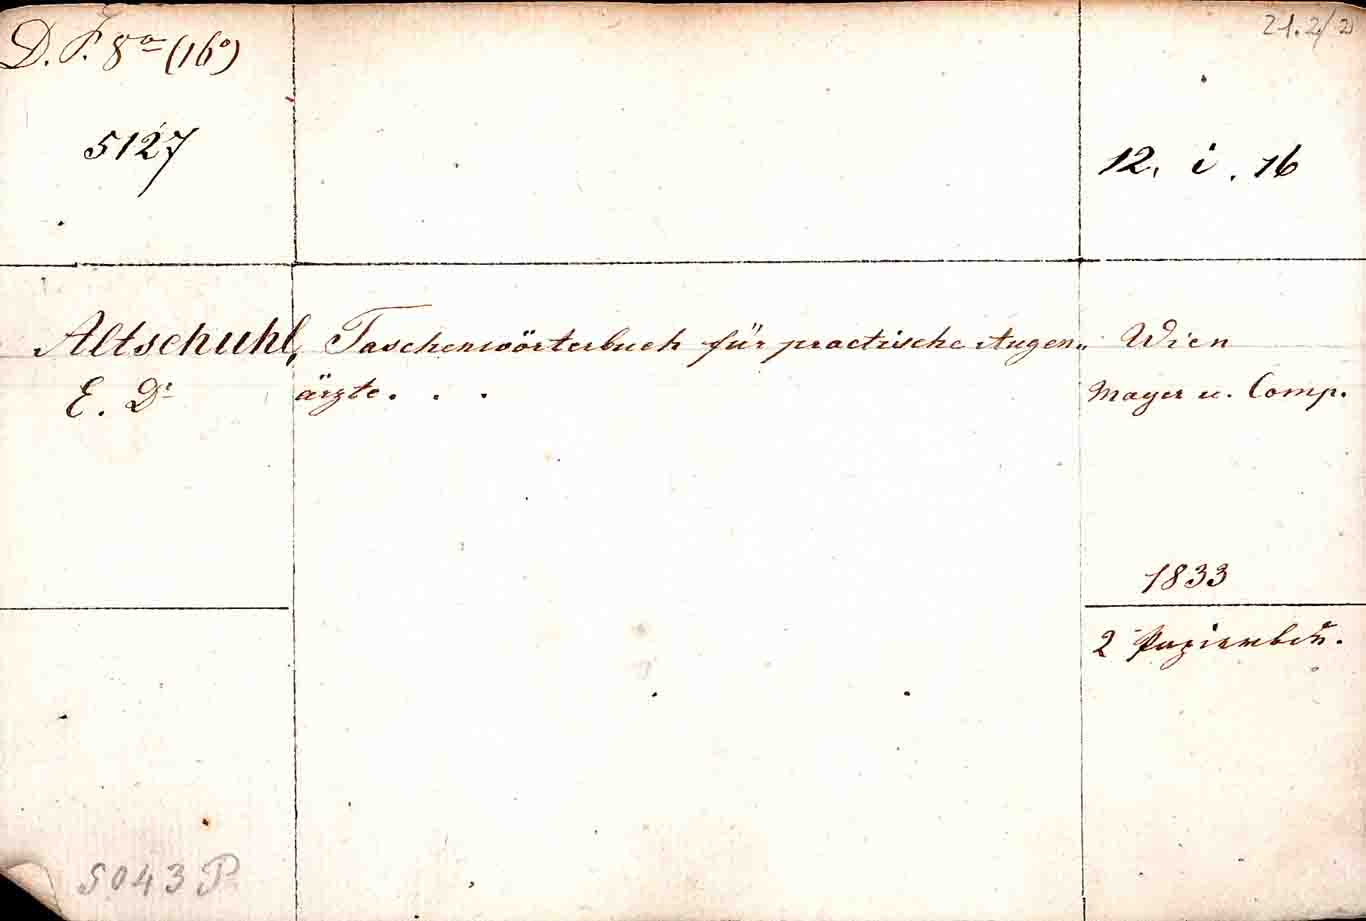 D. F. 8º (16º)
21.2/2
5127
12. i. 16
Altschuhl,
E. Dr
Taschenwörterbuch für practische Augen„
ärzte. . .
Wien
Mayer u. Comp.
1833
2
5043 P